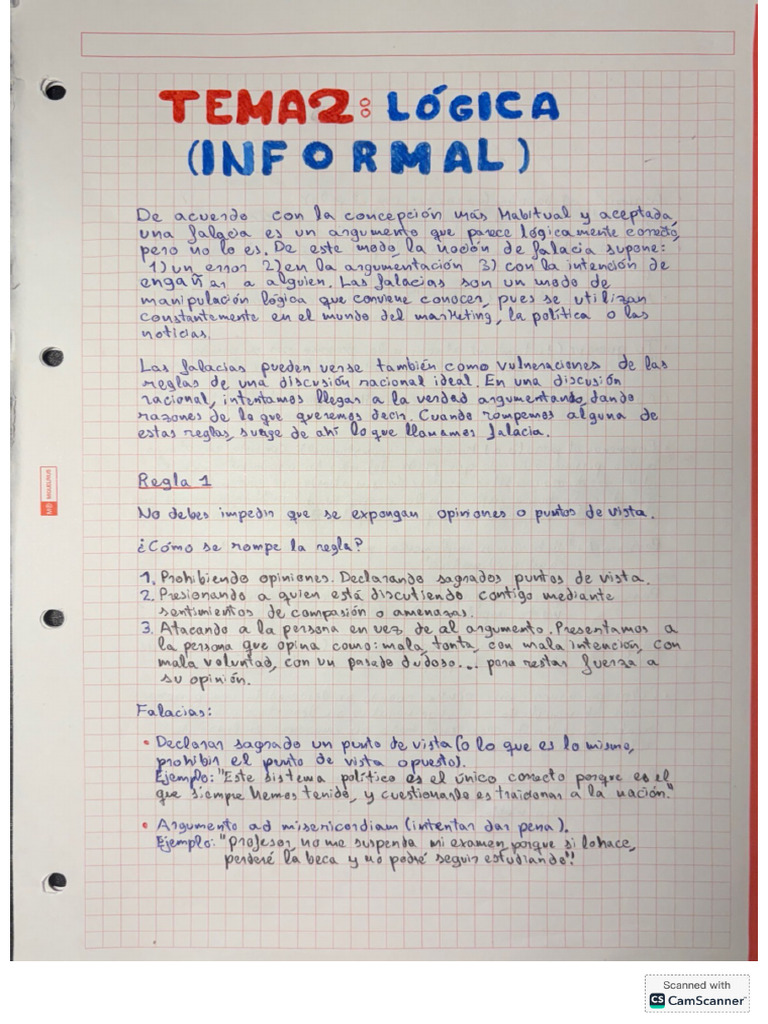 TEMA2: LÓGICA
(INFORMAL)
De acuerdo con la concepción más Habitual y aceptada,
una falacia es un argumento que parece lógicamente correcto,
pero no lo es. De este modo, la noción de falacia supone:
1) un error 2) en la argumentación 3) con la intención de
engañar a alguien. Las falacias son un modo de
manipulación lógica que conviene conocer, pues se utilizan
constantemente en el mundo del marketing, la política o las
noticias.
Las falacias pueden verse también como vulneraciones de las
reglas de una discusión racional ideal. En una discusión
racional, intentamos llegar a la verdad argumentando, dando
razones de lo que queremos decir. Cuando rompemos alguna de
estas reglas, surge de ahí lo que llamamos falacia.
Regla 1
No debes impedir que se expongan opiniones o puntos de vista.
¿Cómo se rompe la regla?
1. Prohibiendo opiniones. Declarando sagrados puntos de vista.
2. Presionando a quien está discutiendo contigo mediante
sentimientos de compasión o amenazas.
3. Atacando a la persona en vez de al argumento. Presentamos a
la persona que opina como: mala, tonta, con mala intención, con
mala voluntad, con un pasado dudoso... para restar fuerza a
su opinión.
Falacias:
• Declarar sagrado un punto de vista (o lo que es lo mismo,
prohibir el punto de vista opuesto).
Ejemplo: "Este sistema político es el único correcto porque es el
que siempre hemos tenido, y cuestionarlo es traicionar a la nación."
• Argumento ad misericordiam (intentar dar pena).
Ejemplo: "Profesor, no me suspenda mi examen porque si lo hace,
perderé la beca y no podré seguir estudiando"!
MIQUELRIUS
Scanned with
CS CamScanner